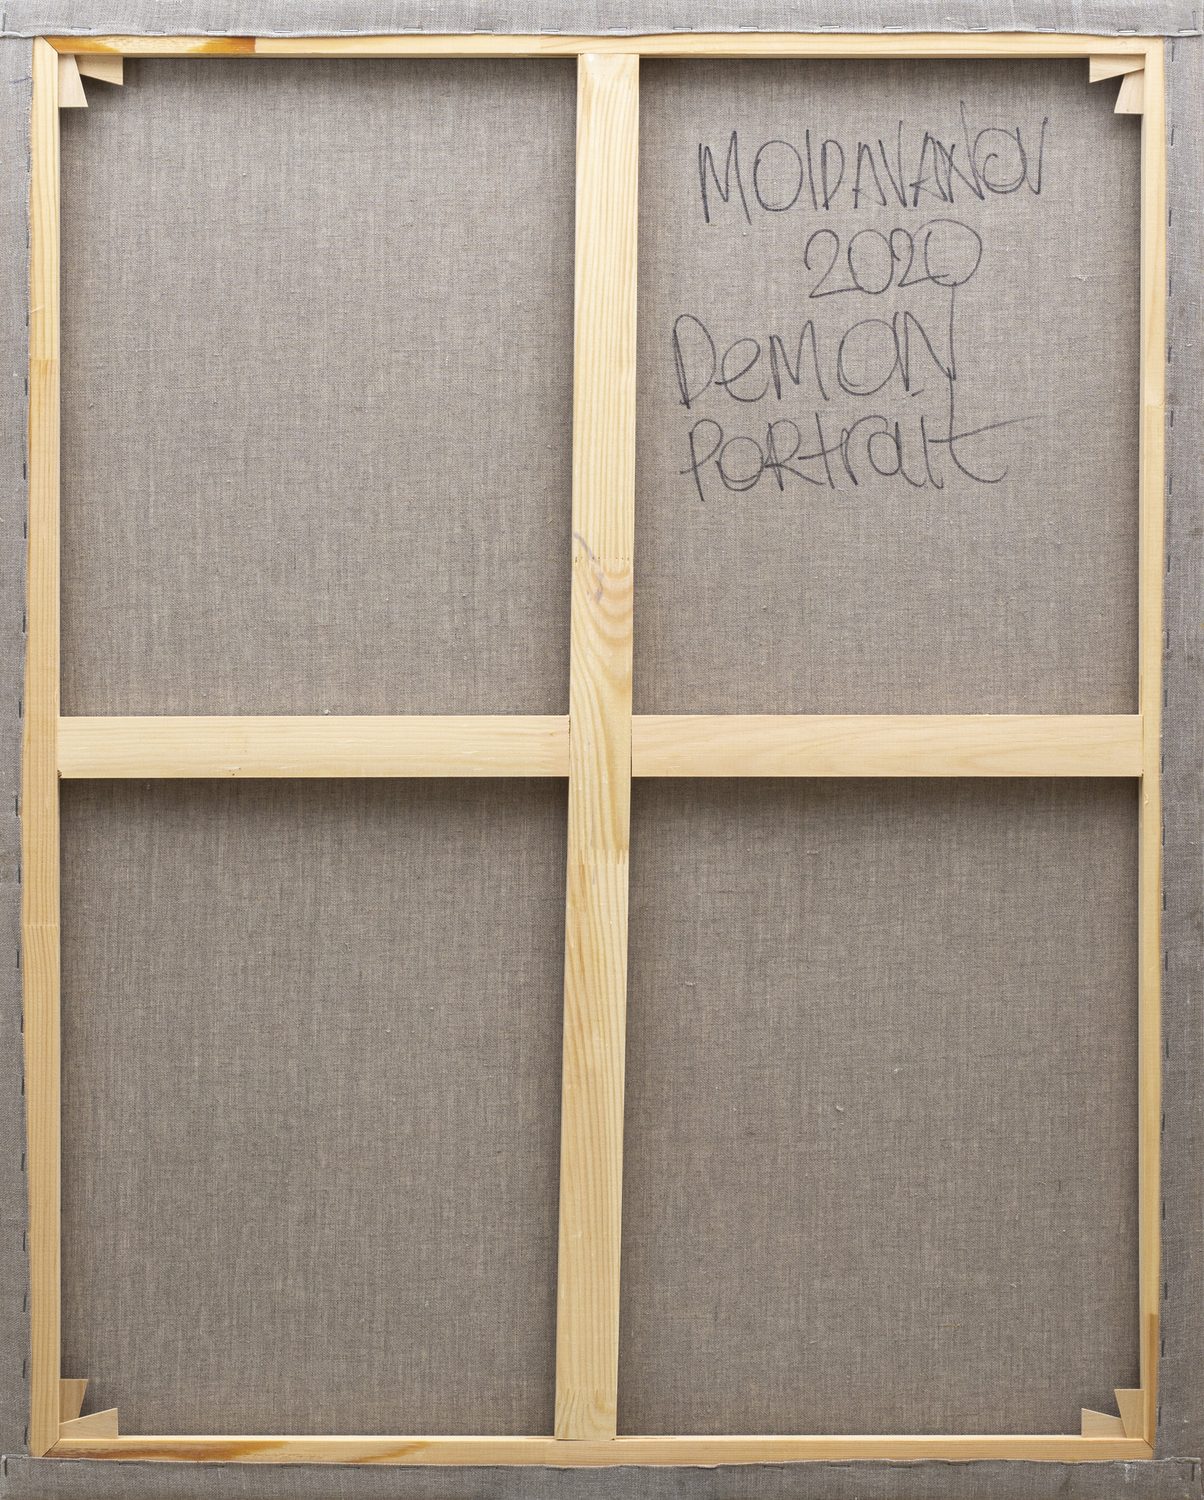 MOlDAVANOV
2020
DeMON
PORtrait